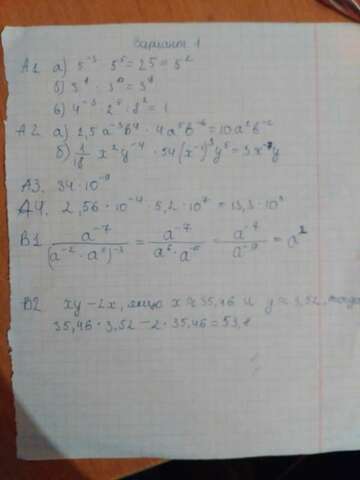 Вариант 1
А1 а) 5⁻³ · 5⁵ = 25 = 5²
б) 3⁸ : 3¹⁰ =
в) 4⁻³ · 2⁵ · 8² = 1
А2. а) 2,5a⁻³b⁴ · 4a⁵b⁻⁶ = 10a²b⁻²
б) 1/18 x²y⁻⁴ · 54(x⁻¹)³y⁵ = 3x⁻¹y
А3. 34·10⁻⁹
А4. 2,56 · 10⁻⁴ · 5,2 · 10⁷ = 13,3 · 10³
В1 a⁻⁷/(a⁻² · a⁵)⁻³ = a⁻⁷/a⁶ · a⁻¹⁵ = a⁻⁷/a⁻⁹ = a²
В2 xy – 2x, x ≈ 35,46 и y ≈ 3,52, тогда
35,46 · 3,52 – 2 · 35,46 = 53,